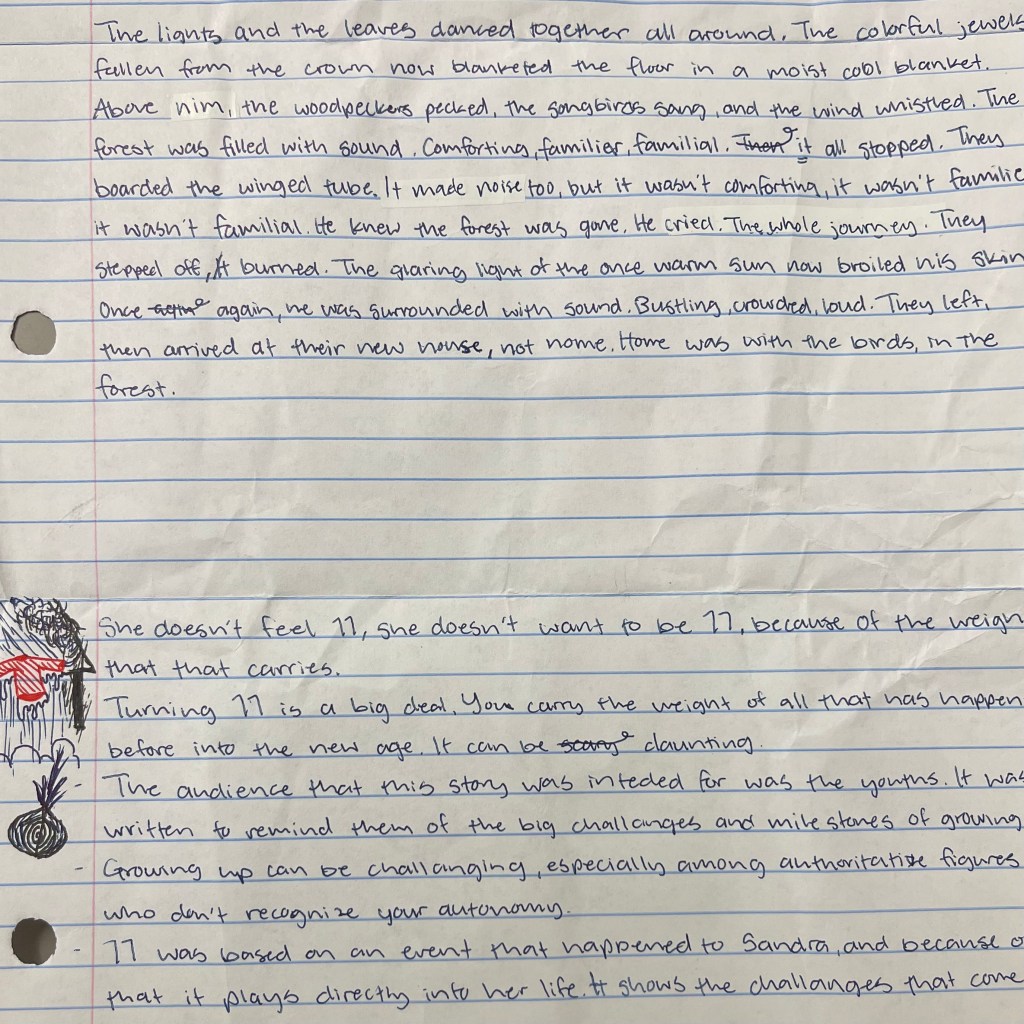 The lights and the leaves danced together all around. The colorful jewels
fallen from the crown now blanketed the floor in a moist cool blanket.
Above him, the woodpeckers pecked, the songbirds sang, and the wind whistled. The
forest was filled with sound. Comforting, familier, familial. Then it all stopped. They
boarded the winged tube. It made noise too, but it wasn't comforting, it wasn't familie
it wasn't familial. He knew the forest was gone. He cried. The whole journey. They
stepped off, It burned. The glaring light of the once warm sun now broiled his skin
Once again, he was surrounded with sound. Bustling, crowded, loud. They left,
then arrived at their new house, not home. Home was with the birds, in the
forest.
She doesn't feel 11, she doesn't want to be 11, because of the weigh
that that carries.
Turning 11 is a big deal. You carry the weight of all that has happen
before into the new age. It can be scary daunting.
- The audience that this story was inteded for was the youths. It was
written to remind them of the big challanges and mile stones of growing
- Growing up can be challanging, especially among authoritative figures
who don't recognize your autonomy.
- 11 was based on an event that happened to Sandra, and because o
that it plays directly into her life. It shows the challanges that come